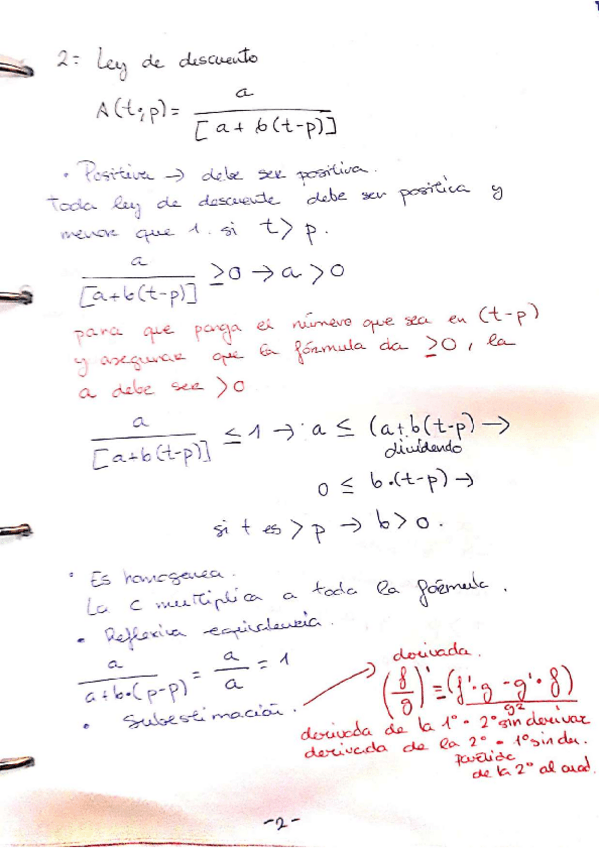 2= Ley de descuento
A(t;p)= a / [a+b(t-p)]
• Positiva → debe ser positiva.
Toda ley de descuente debe ser positica y
menor que 1. si t> p.
a / [a+b(t-p)] ≥0 → a >0
para que ponga el número que sea en (t-p)
y asegurar que la fórmula da ≥0, la
a debe ser >0
a / [a+b(t-p)] ≤ 1 → a ≤ (a+b(t-p) →
dividendo
0 ≤ b•(t-p) →
si t es > p → b>0.
• Es homogenea.
La c multiplica a toda la fórmula.
• Reflexiva equivalencia.
a / a+b•(p-p) = a / a = 1
• Subestimación.
derivada.
(f/g)' = (f'•g - g'•f) / g²
derivada de la 1º - 2º sin derivar
derivada de la 2º - 1º sin de.
de la 2º al cuad.
-2-